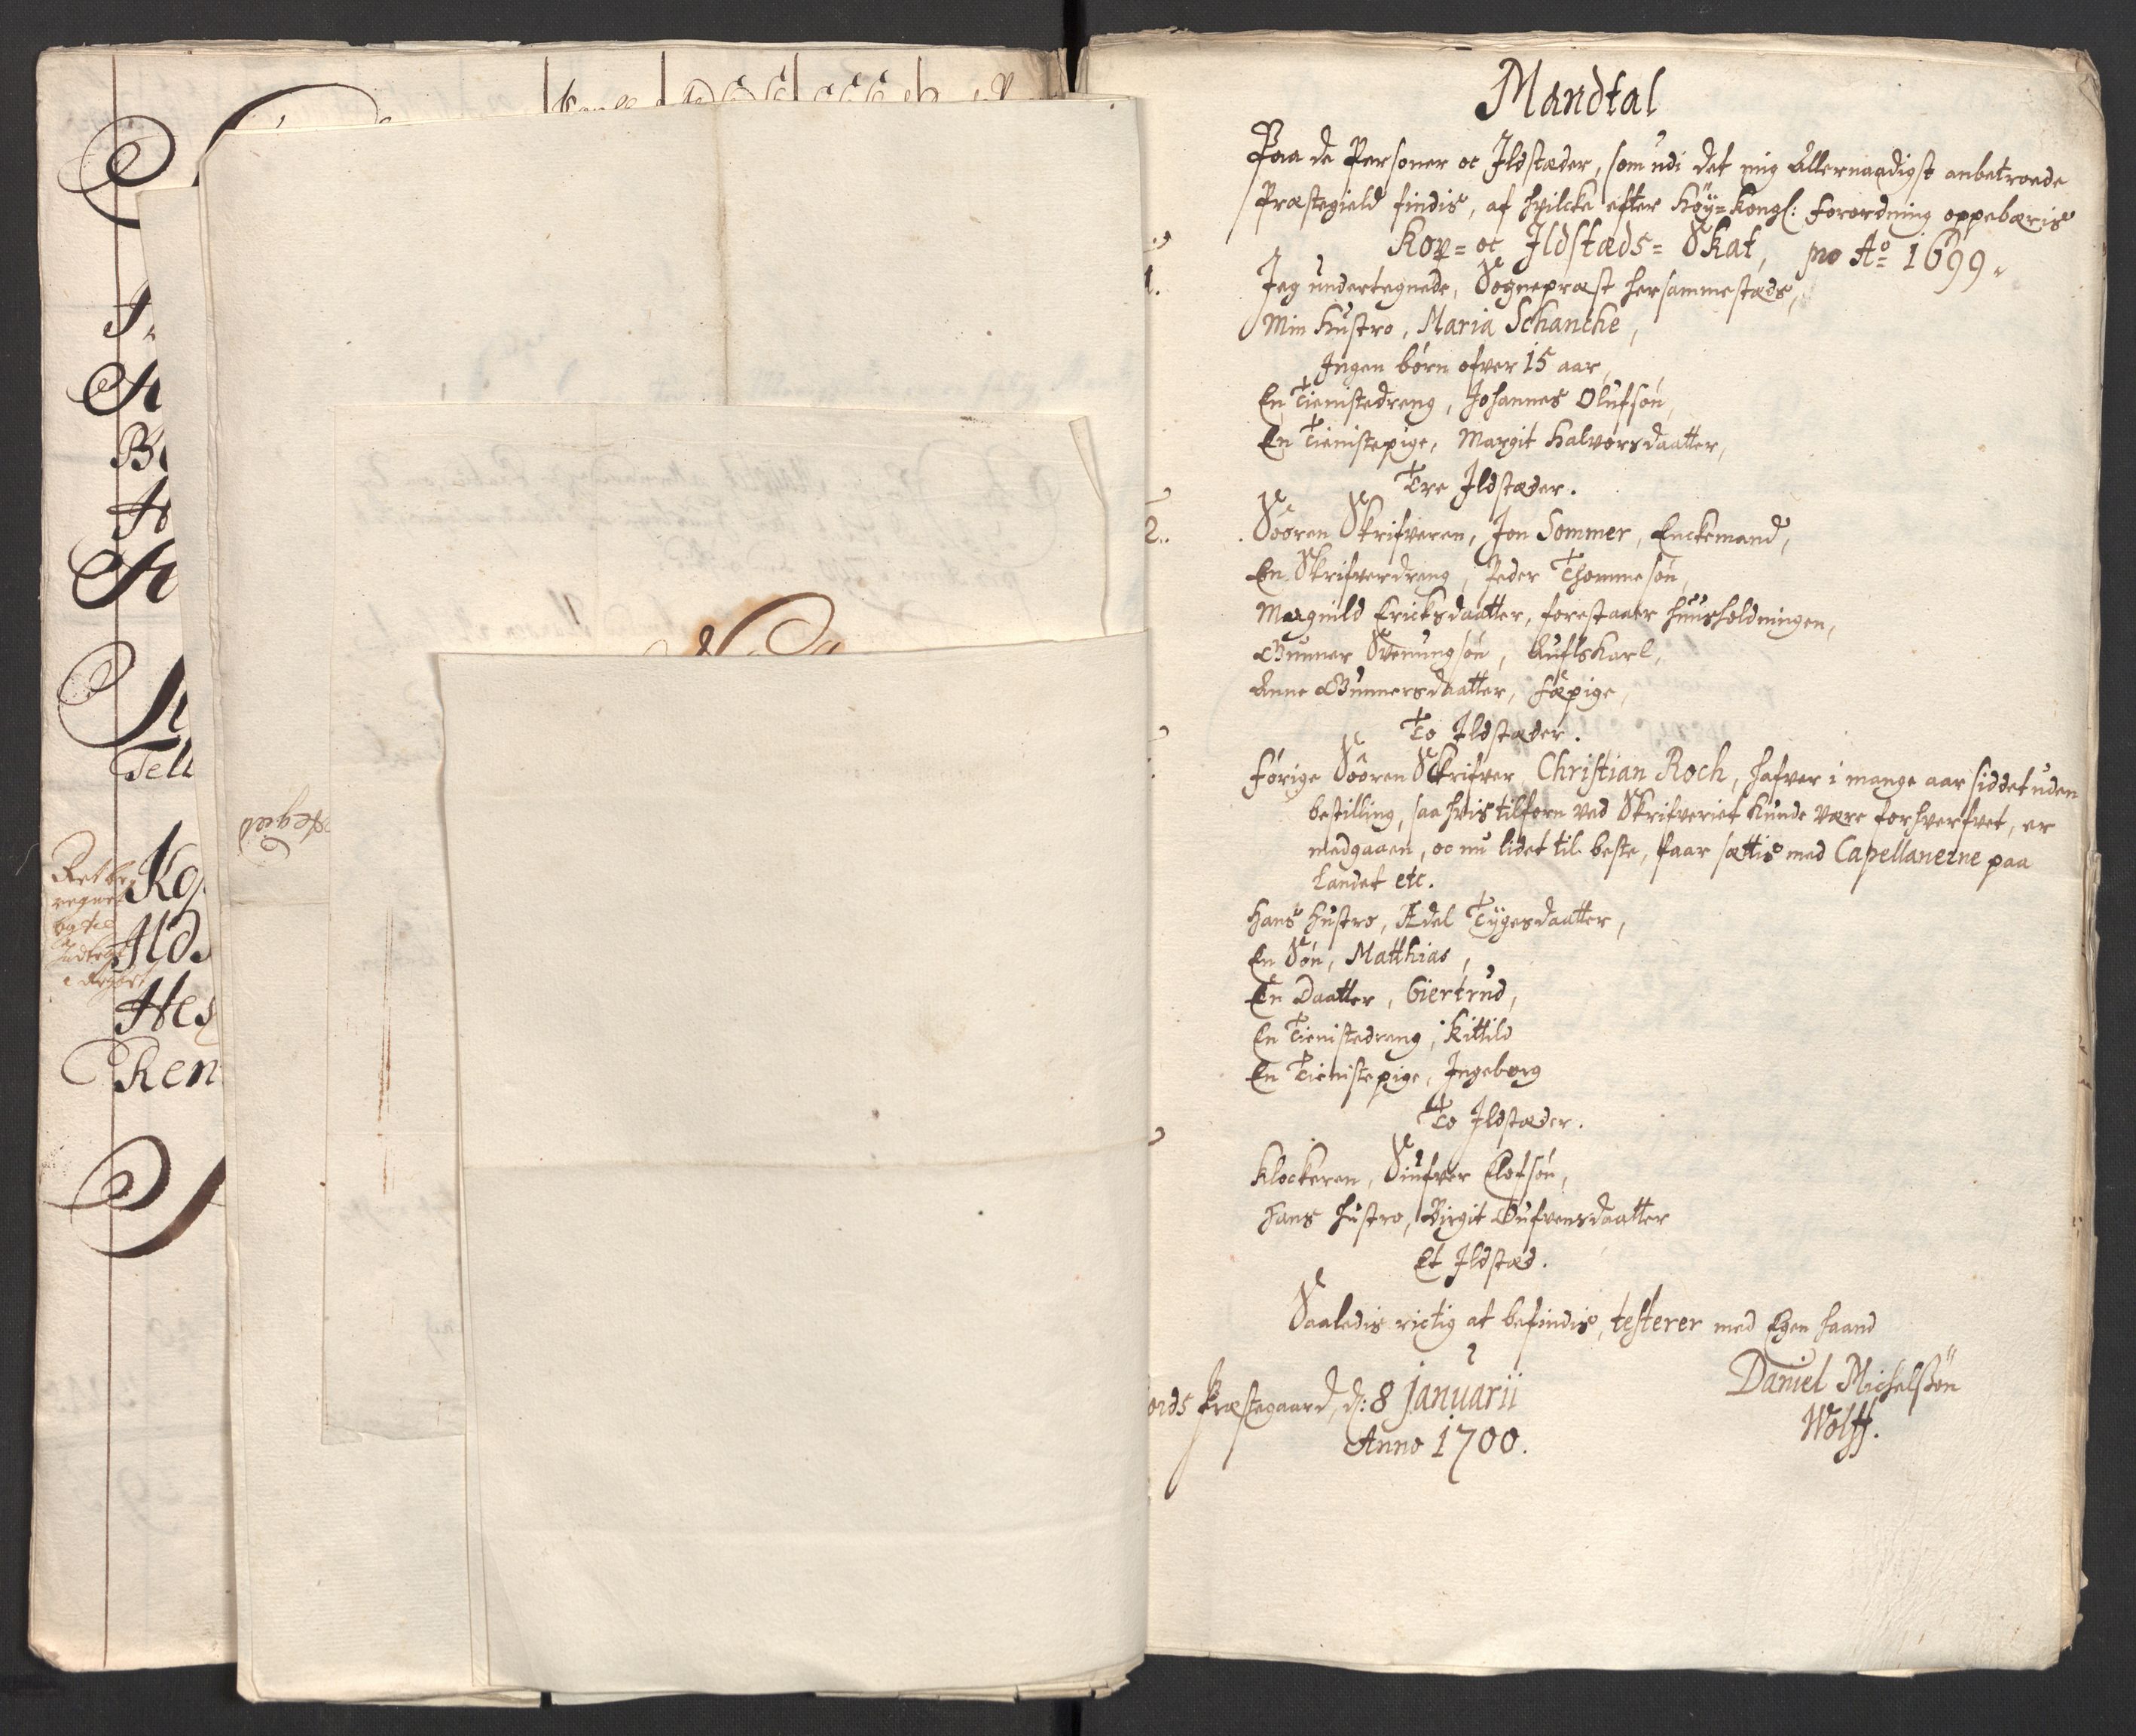 Mandtal
Paa de Personer oc Ildstæder, som udi det mig Allernaadigst anbetroede
Præstegield findis, af hvilcke efter Höy=Kongl: Forordning oppebæris
Kop= oc Ildstæds= Skat, pro Aº 1699.
1.
Jeg undertegnede, Sognepræst hersammestæds,
Min Hustro, Maria Schanche,
Ingen børn ofver 15 aar,
En Tienistedreng, Johannes Olufsøn,
En Tienistepige, Margit Halvorsdaatter,
Tre Ildstæder.
2.
Soøren Skrifveren, Jon Sommer, Enckemand,
En Skrifverdreng, Peder Thommesøn,
Magnild Ericksdaatter, forestaaer Huusholdningen,
Gunner Svenungsøn, Aufls Karl,
Anne Gunnersdaatter, Fæpige,
To Ildstæder.
Førige Soøren Skrifver, Christian Roch, hafver i mange aar siddet uden
bestilling, saa hvis tilforn ved Skrifveriet kunde være forhverfvet, er
medgaaen, oc nu lidet til beste, faar sættis med Capellanerne paa
Landet etc.
Hans Hustro, Adel Tygesdaatter,
En Søn, Matthias,
En Daatter, Giertrud,
En Tienistedreng, Kittild
En Tienistepige, Ingeborg
To Ildstæder.
Klockeren, Siufver Olofsøn,
Hans Hustro, Birgit Gufvensdaatter
Et Ildstæd.
Saaledis rictig at befindis, testerer med Egen haand
ords Præstegaard, d: 8 Januarii
Anno 1700.
Daniel Michelsøn
Wolff.
Tell
Kop
Ilds
Hes
Ren